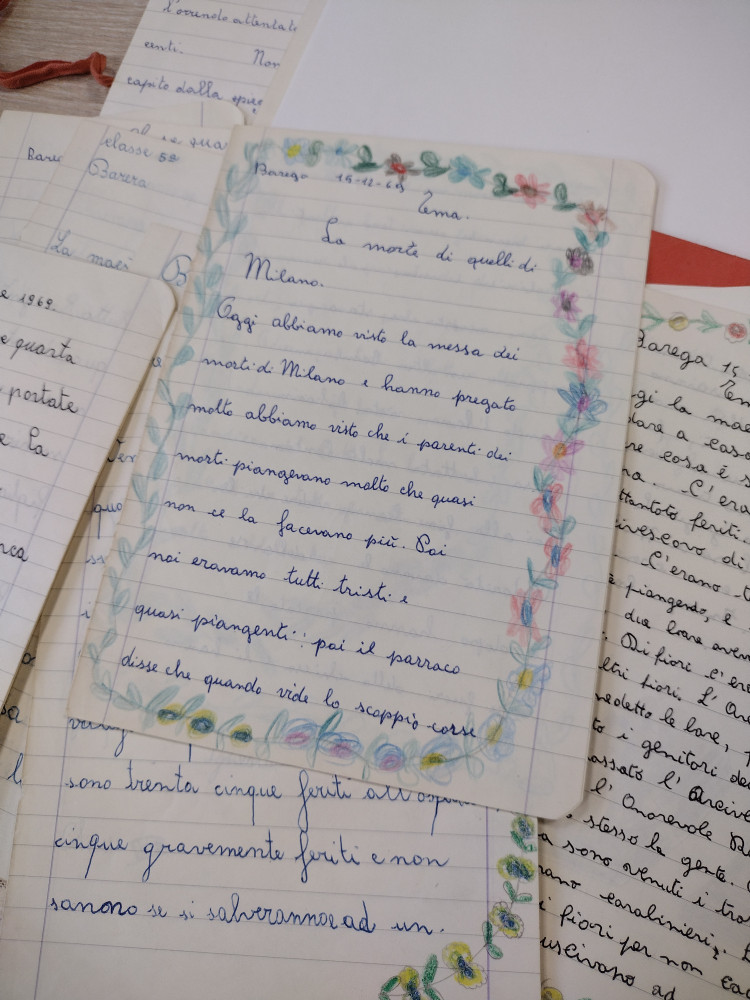 l'orrendo attentato
centi. Non
capito dalla
classe 5ª
Barega
La maes
B
e 1969.
e quarta
portate
e la
Barega 15-12-69
Tema.
La morte di quelli di
Milano.
Oggi abbiamo visto la messa dei
morti di Milano e hanno pregato
molto abbiamo visto che i parenti dei
morti piangevano molto che quasi
non ce la facevano più. Poi
noi eravamo tutti tristi e
quasi piangenti: poi il parroco
disse che quando vide lo scoppio corse
sono trenta cinque feriti all'osp
cinque gravemente feriti e non
sanono se si salveranno ad un.
Barega 15
gi la mae
dare a caso
re cosa è s
na. C'era
ttantotto feriti.
civescovo di
C'erano
piangendo, e
due bare aven
Di fiori c'era
ltri fiori. L'
nedetto le bare,
to i genitori dei
assato l'Arcive
l'Onorevole Ru
stesso la gente.
a sono venuti i
rano carabinieri,
i fiori per non
uscivano ad